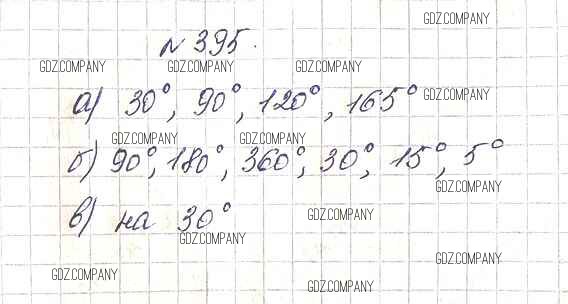 GDZ.COMPANY
№ 395.
GDZ.COMPANY GDZ.COMPANY GDZ.COMPANY
а) 30°, 90°, 120°, 165° GDZ.COMPANY
GDZ.COMPANY GDZ.COMPANY
б) 90°, 180°, 360°, 30°, 15°, 5°
GDZ.COMPANY
в) на 30° GDZ.COMPANY
GDZ.COMPANY
GDZ.COMPANY
GDZ.COMPANY
GDZ.COMPANY